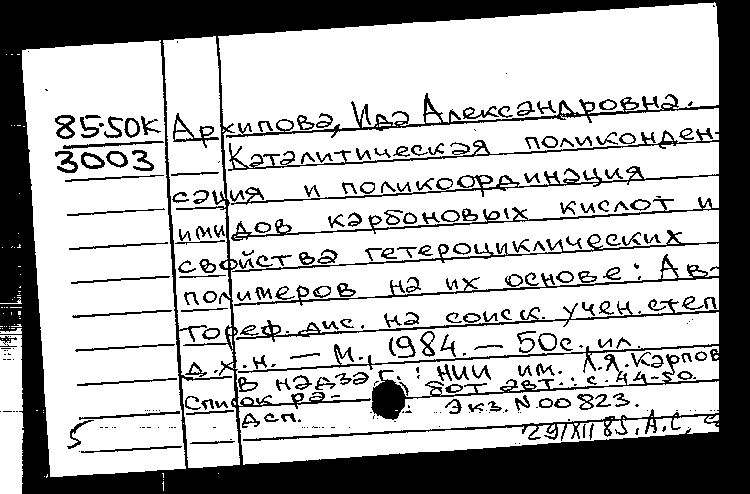 85-50K Архипова, Ида Александровна.
3003 Каталитическая поликонден-
сация и поликоординация
имидов карбоновых кислот и
свойства гетероциклических
полимеров на их основе: Ав-
тореф. дис. на соиск. учен. степ
д.х.н. — М., 1984. — 50с., ил.
В надзаг.: НИИ им. Л.Я.Карпов
Список ра- бот авт.: с. 44-50.
Дсп. Экз. N 00823.
5 29/XII 85. А.С.